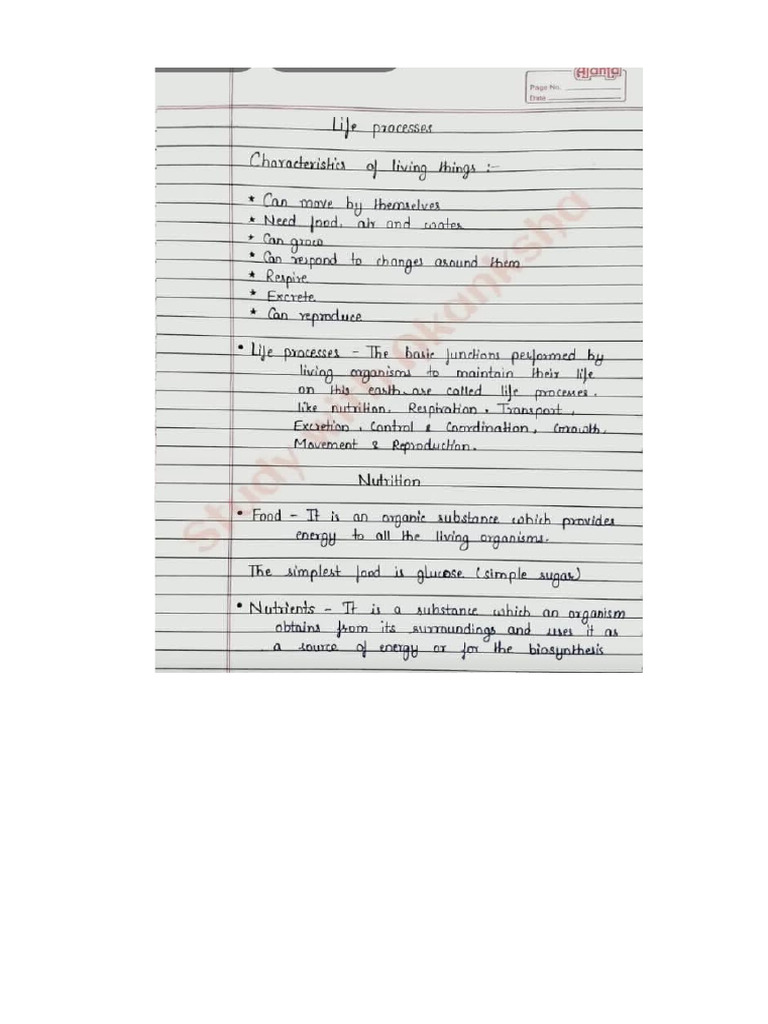 Ajanta
Page No.
Date
Life processes
Characteristics of living things :-
* Can move by themselves
* Need food, air and water
* Can grow
* Can respond to changes around them
* Respire
* Excrete
* Can reproduce
• Life processes - The basic functions performed by
living organisms to maintain their life
on this earth are called life processes.
like nutrition, Respiration, Transport,
Excretion, Control & Coordination, Growth,
Movement & Reproduction.
Nutrition
• Food - It is an organic substance which provides
energy to all the living organisms.
The simplest food is glucose (simple sugar)
• Nutrients - It is a substance which an organism
obtains from its surroundings and uses it as
a source of energy or for the biosynthesis
Study with Akanksha